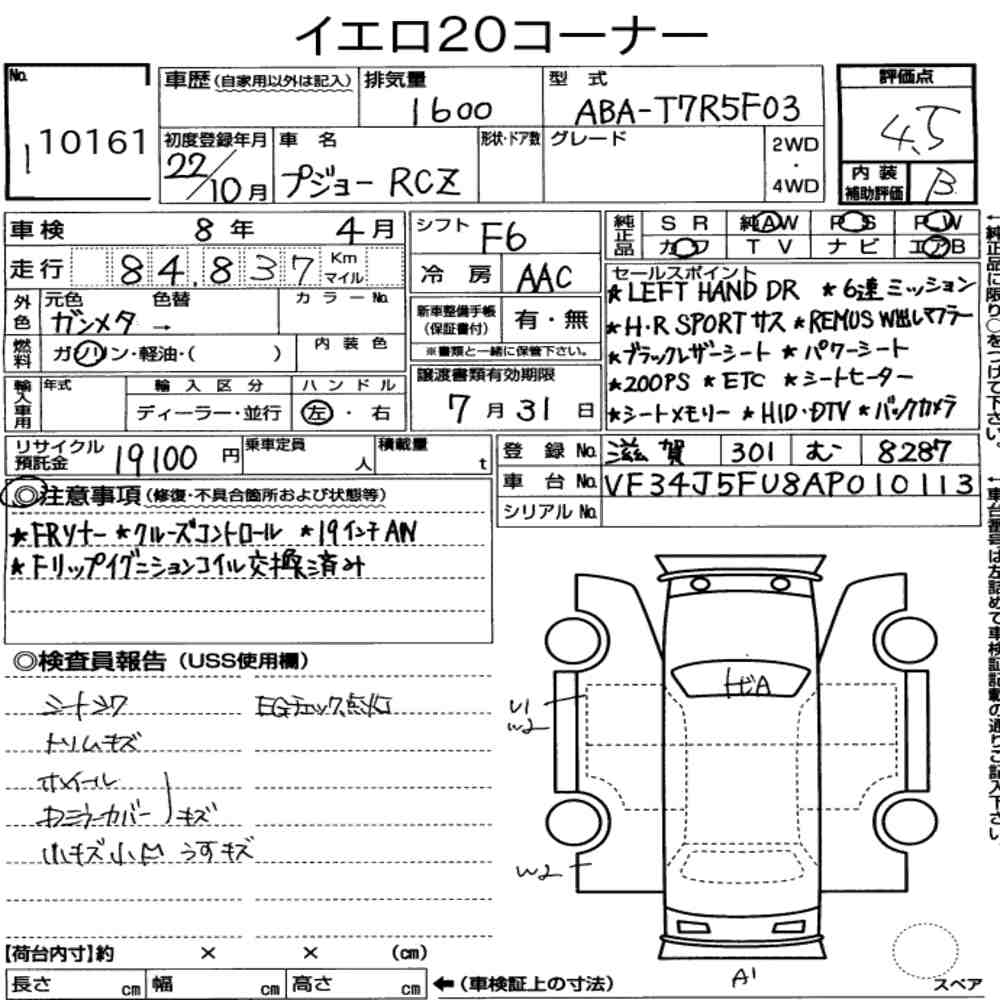 イエロ20コーナー
No.
10161
車歴(自家用以外は記入)
排気量
1600
型式
ABA-T7R5F03
評価点
4.5
内装補助評価
B
初度登録年月
22/10月
車名
プジョー RCZ
形状・ドア数
グレード
2WD
・
4WD
車検 8年 4月
シフト F6
走行 84,837 Km マイル
冷房 AAC
外色 元色 色替 カラーNo.
ガンメタ →
燃料 ガソリン・軽油・( )
内装色
新車整備手帳(保証書付) 有・無
※書類と一緒に保管下さい。
輸入車用 年式 輸入区分 ハンドル
ディーラー・並行 左・右
譲渡書類有効期限
7月31日
純正品 SR 純AW PS PW
カワ TV ナビ エアB
セールスポイント
★LEFT HAND DR ★6速ミッション
★H・R SPORTサス ★REMUS W出しマフラー
★ブラックレザーシート ★パワーシート
★200PS ★ETC ★シートヒーター
★シートメモリー ★HID・DTV ★バックカメラ
リサイクル預託金 19100円
乗車定員 人
積載量 t
登録No. 滋賀 301 む 8287
車台No. VF34J5FU8AP010113
シリアルNo.
◎注意事項(修復・不具合箇所および状態等)
★FRソナー ★クルーズコントロール ★19インチAW
★Fリップイグニションコイル交換済み
◎検査員報告(USS使用欄)
シートシワ EGチェック点灯
トリムキズ
ホイール
ドアミラーカバー キズ
小キズ小凹 うすキズ
U1
W2
W2
トビA
A1
スペア
【荷台内寸】約 × × (cm)
長さ cm 幅 cm 高さ cm ←(車検証上の寸法)
←純正品に限り○をつけて下さい。
←車台番号は左詰めで車検証記載の通りご記入下さい。